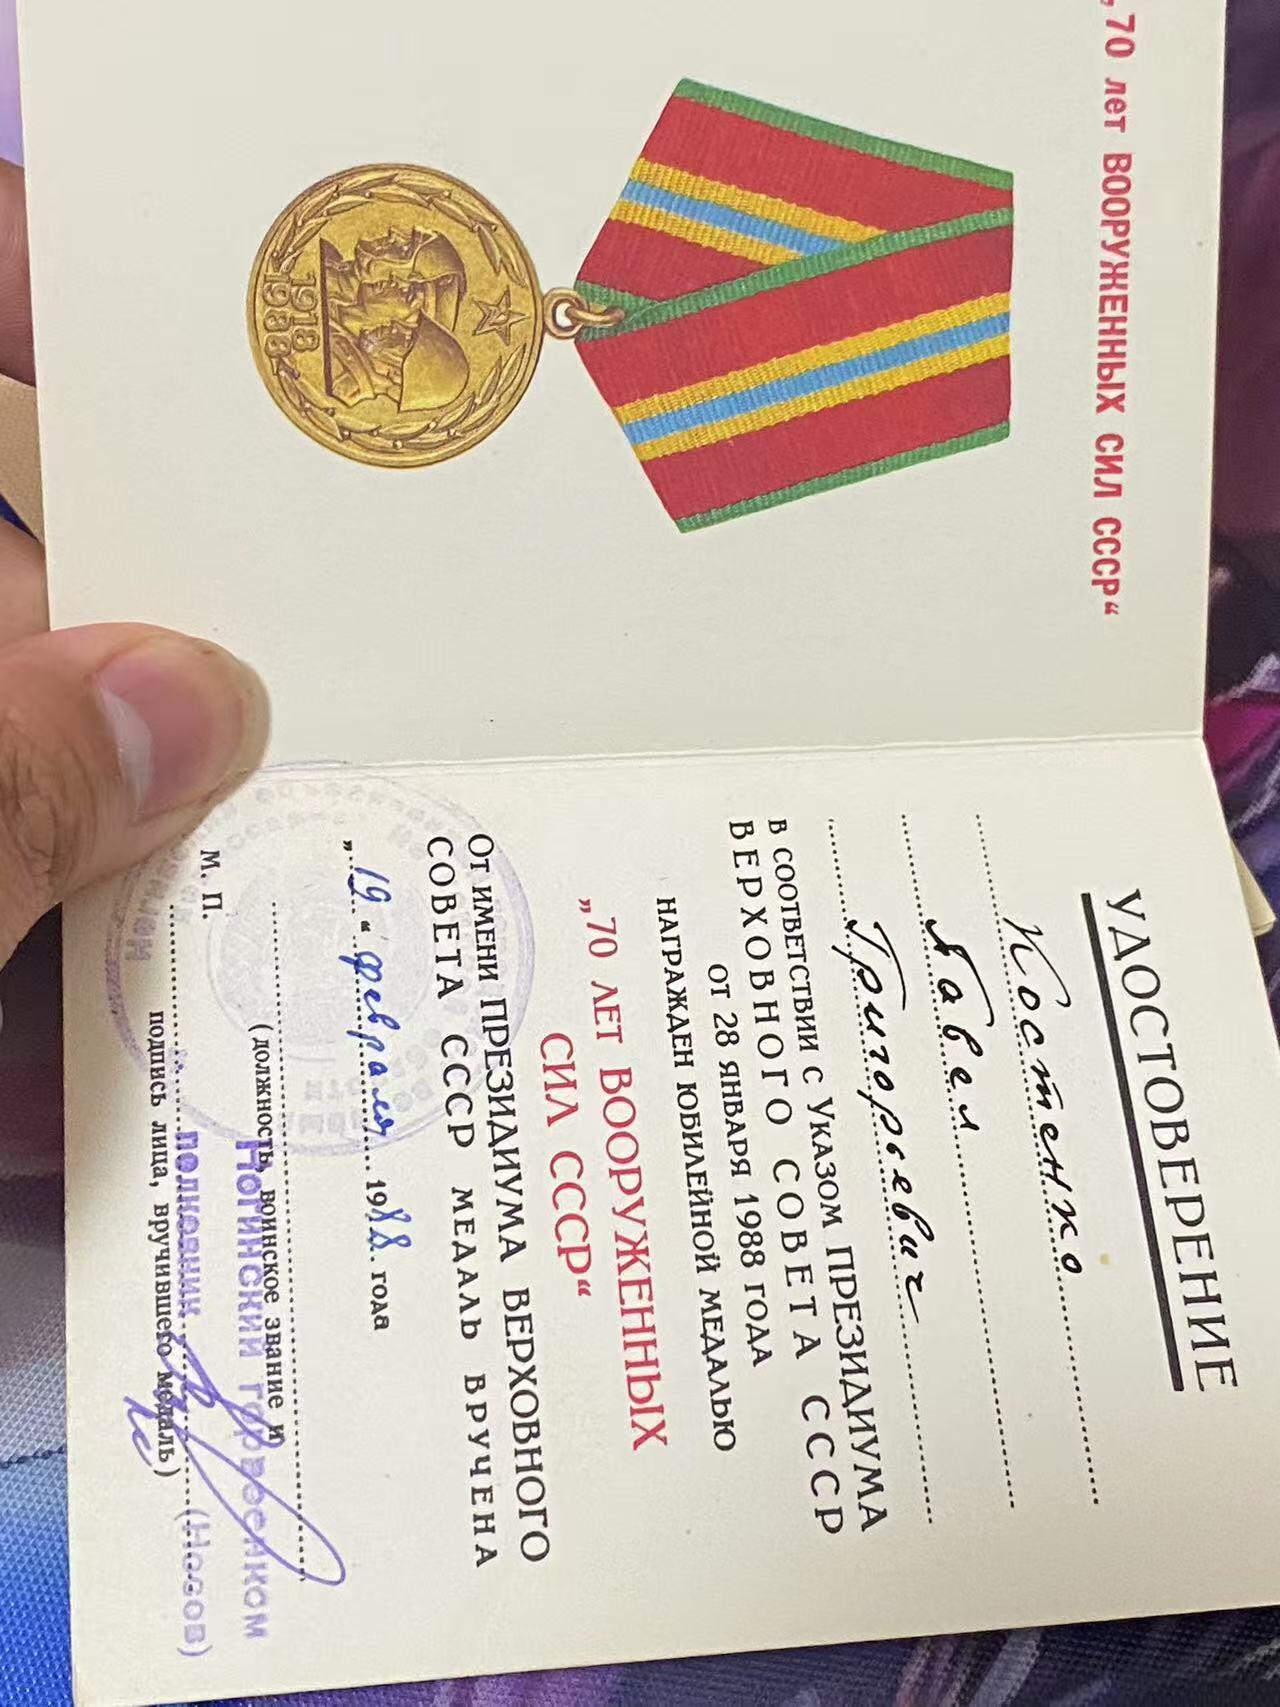 „70 лет ВООРУЖЕННЫХ СИЛ СССР“
1918
1988
УДОСТОВЕРЕНИЕ
Костенко
Павел
Григорьевич
В СООТВЕТСТВИИ С УКАЗОМ ПРЕЗИДИУМА
ВЕРХОВНОГО СОВЕТА СССР
ОТ 28 ЯНВАРЯ 1988 ГОДА
НАГРАЖДЕН ЮБИЛЕЙНОЙ МЕДАЛЬЮ
„70 ЛЕТ ВООРУЖЕННЫХ
СИЛ СССР“
ОТ ИМЕНИ ПРЕЗИДИУМА ВЕРХОВНОГО
СОВЕТА СССР МЕДАЛЬ ВРУЧЕНА
„19“ февраля 1988. года
(должность, воинское звание и
Ногинский горвоенком
М. П.
полковник (Носов)
подпись лица, вручившего медаль)